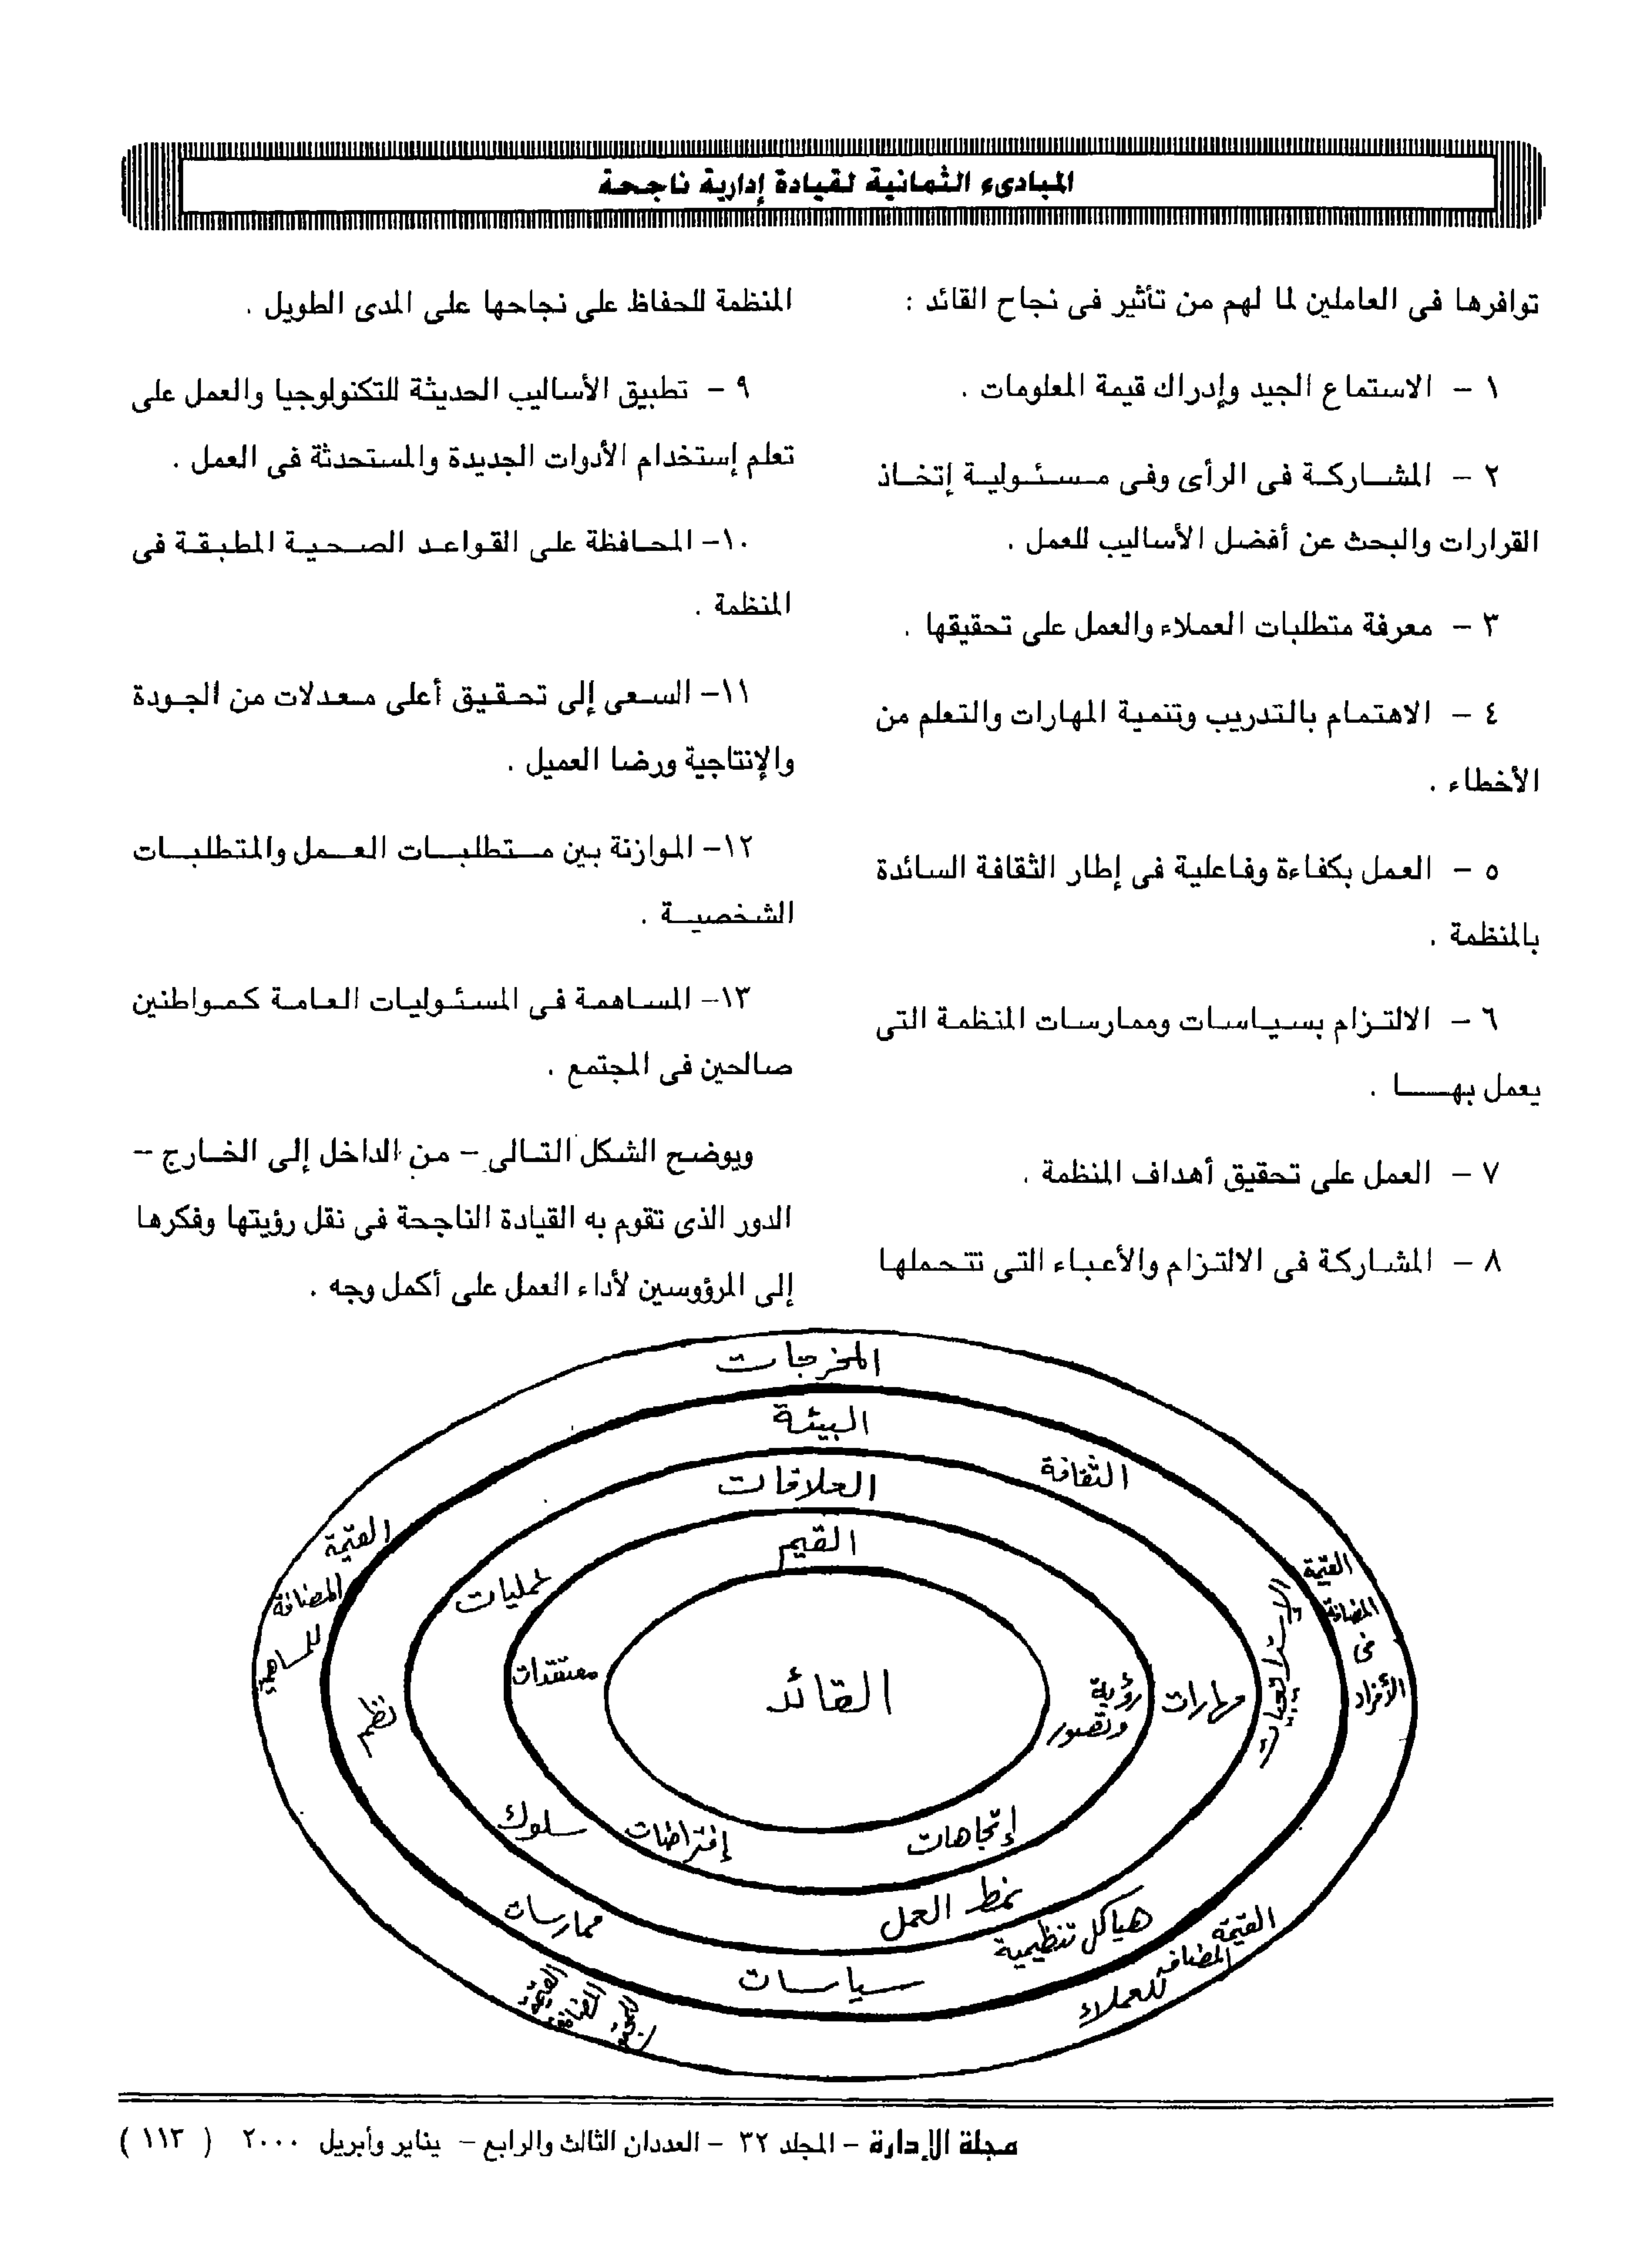 المبادىء الثمانية لقيادة إدارية ناجحة
توافرها فى العاملين لما لهم من تأثير فى نجاح القائد :
١ - الاستماع الجيد وإدراك قيمة المعلومات .
٢ - المشاركة فى الرأى وفى مسئولية إتخاذ
القرارات والبحث عن أفضل الأساليب للعمل .
٣ - معرفة متطلبات العملاء والعمل على تحقيقها .
٤ - الاهتمام بالتدريب وتنمية المهارات والتعلم من
الأخطاء .
٥ - العمل بكفاءة وفاعلية فى إطار الثقافة السائدة
بالمنظمة .
٦ - الالتزام بسياسات وممارسات المنظمة التى
يعمل بها .
٧ - العمل على تحقيق أهداف المنظمة .
٨ - المشاركة فى الالتزام والأعباء التى تتحملها
المنظمة للحفاظ على نجاحها على المدى الطويل .
٩ - تطبيق الأساليب الحديثة للتكنولوجيا والعمل على
تعلم إستخدام الأدوات الجديدة والمستحدثة فى العمل .
١٠- المحافظة على القواعد الصحية المطبقة فى
المنظمة .
١١- السعى إلى تحقيق أعلى معدلات من الجودة
والإنتاجية ورضا العميل .
١٢- الموازنة بين متطلبات العمل والمتطلبات
الشخصية .
١٣- المساهمة فى المسئوليات العامة كمواطنين
صالحين فى المجتمع .
ويوضح الشكل التالى - من الداخل إلى الخارج -
الدور الذى تقوم به القيادة الناجحة فى نقل رؤيتها وفكرها
إلى المرؤوسين لأداء العمل على أكمل وجه .
المخرجات
البيئة
الثقافة
العلاقات
القيم
القيمة
المضافة
القيمة
المضافة
فى
الأفراد
عمليات
الإستراتيجيات
معتقدات
القائد
رؤية
وتصور
مهارات
نظم
سلوك
إفتراضات
إتجاهات
نمط العمل
ممارسات
هياكل تنظيمية
سياسات
القيمة
المضافة
للعملاء
القيمة
المضافة
مجلة الإدارة - المجلد ٣٢ - العددان الثالث والرابع - يناير وأبريل ٢٠٠٠ ( ١١٣ )